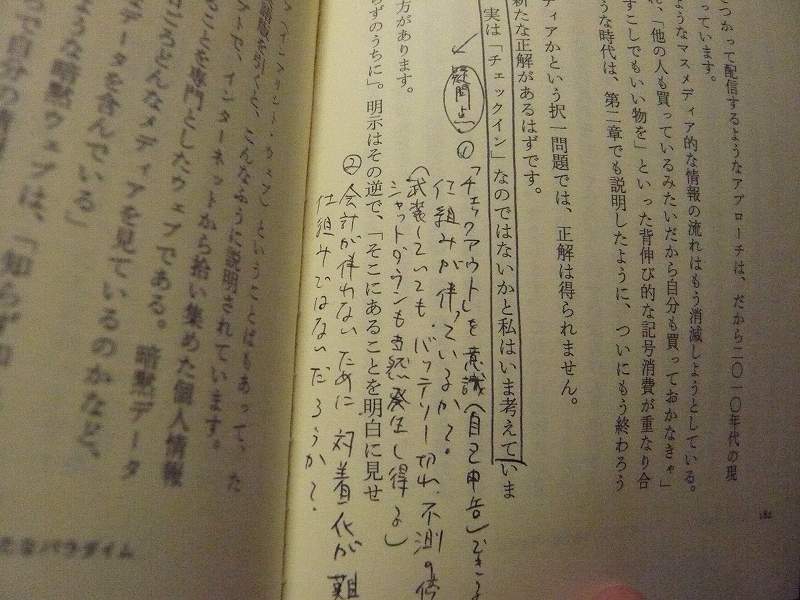 つかって配信するようなアプローチは、だから二〇一〇年代の現
っています。
ようなマスメディア的な情報の流れはもう消滅しようとしている。
、「他の人も買っているみたいだから自分も買っておかなきゃ」
すこしでもいい物を」といった背伸び的な記号消費が重なり合
うな時代は、第二章でも説明したように、ついにもう終わろう
ディアかという択一問題では、正解は得られません。
新たな正解があるはずです。
実は「チェックイン」なのではないかと私はいま考えていま
疑問点
①「チェックアウト」を意識(自己申告)できる
仕組みが伴っているか?
(武装していても、バッテリー切れ、不測の
シャットダウンも当然発生し得る)
方があります。
らずのうちに」。明示はその逆で、「そこにあることを明白に見せ
②会計が伴わないために対着化が難
仕組みではないだろうか?
ということばもあって、た
を引くと、こんなふうに説明されています。
フトで、インターネットから拾い集めた個人情報
ことを専門としたウェブである。暗黙データ
ごろどんなメディアを見ているのかなど、
データを含んでいる」
ような暗黙ウェブは、「知らず知
で自分の情報
パラダイム